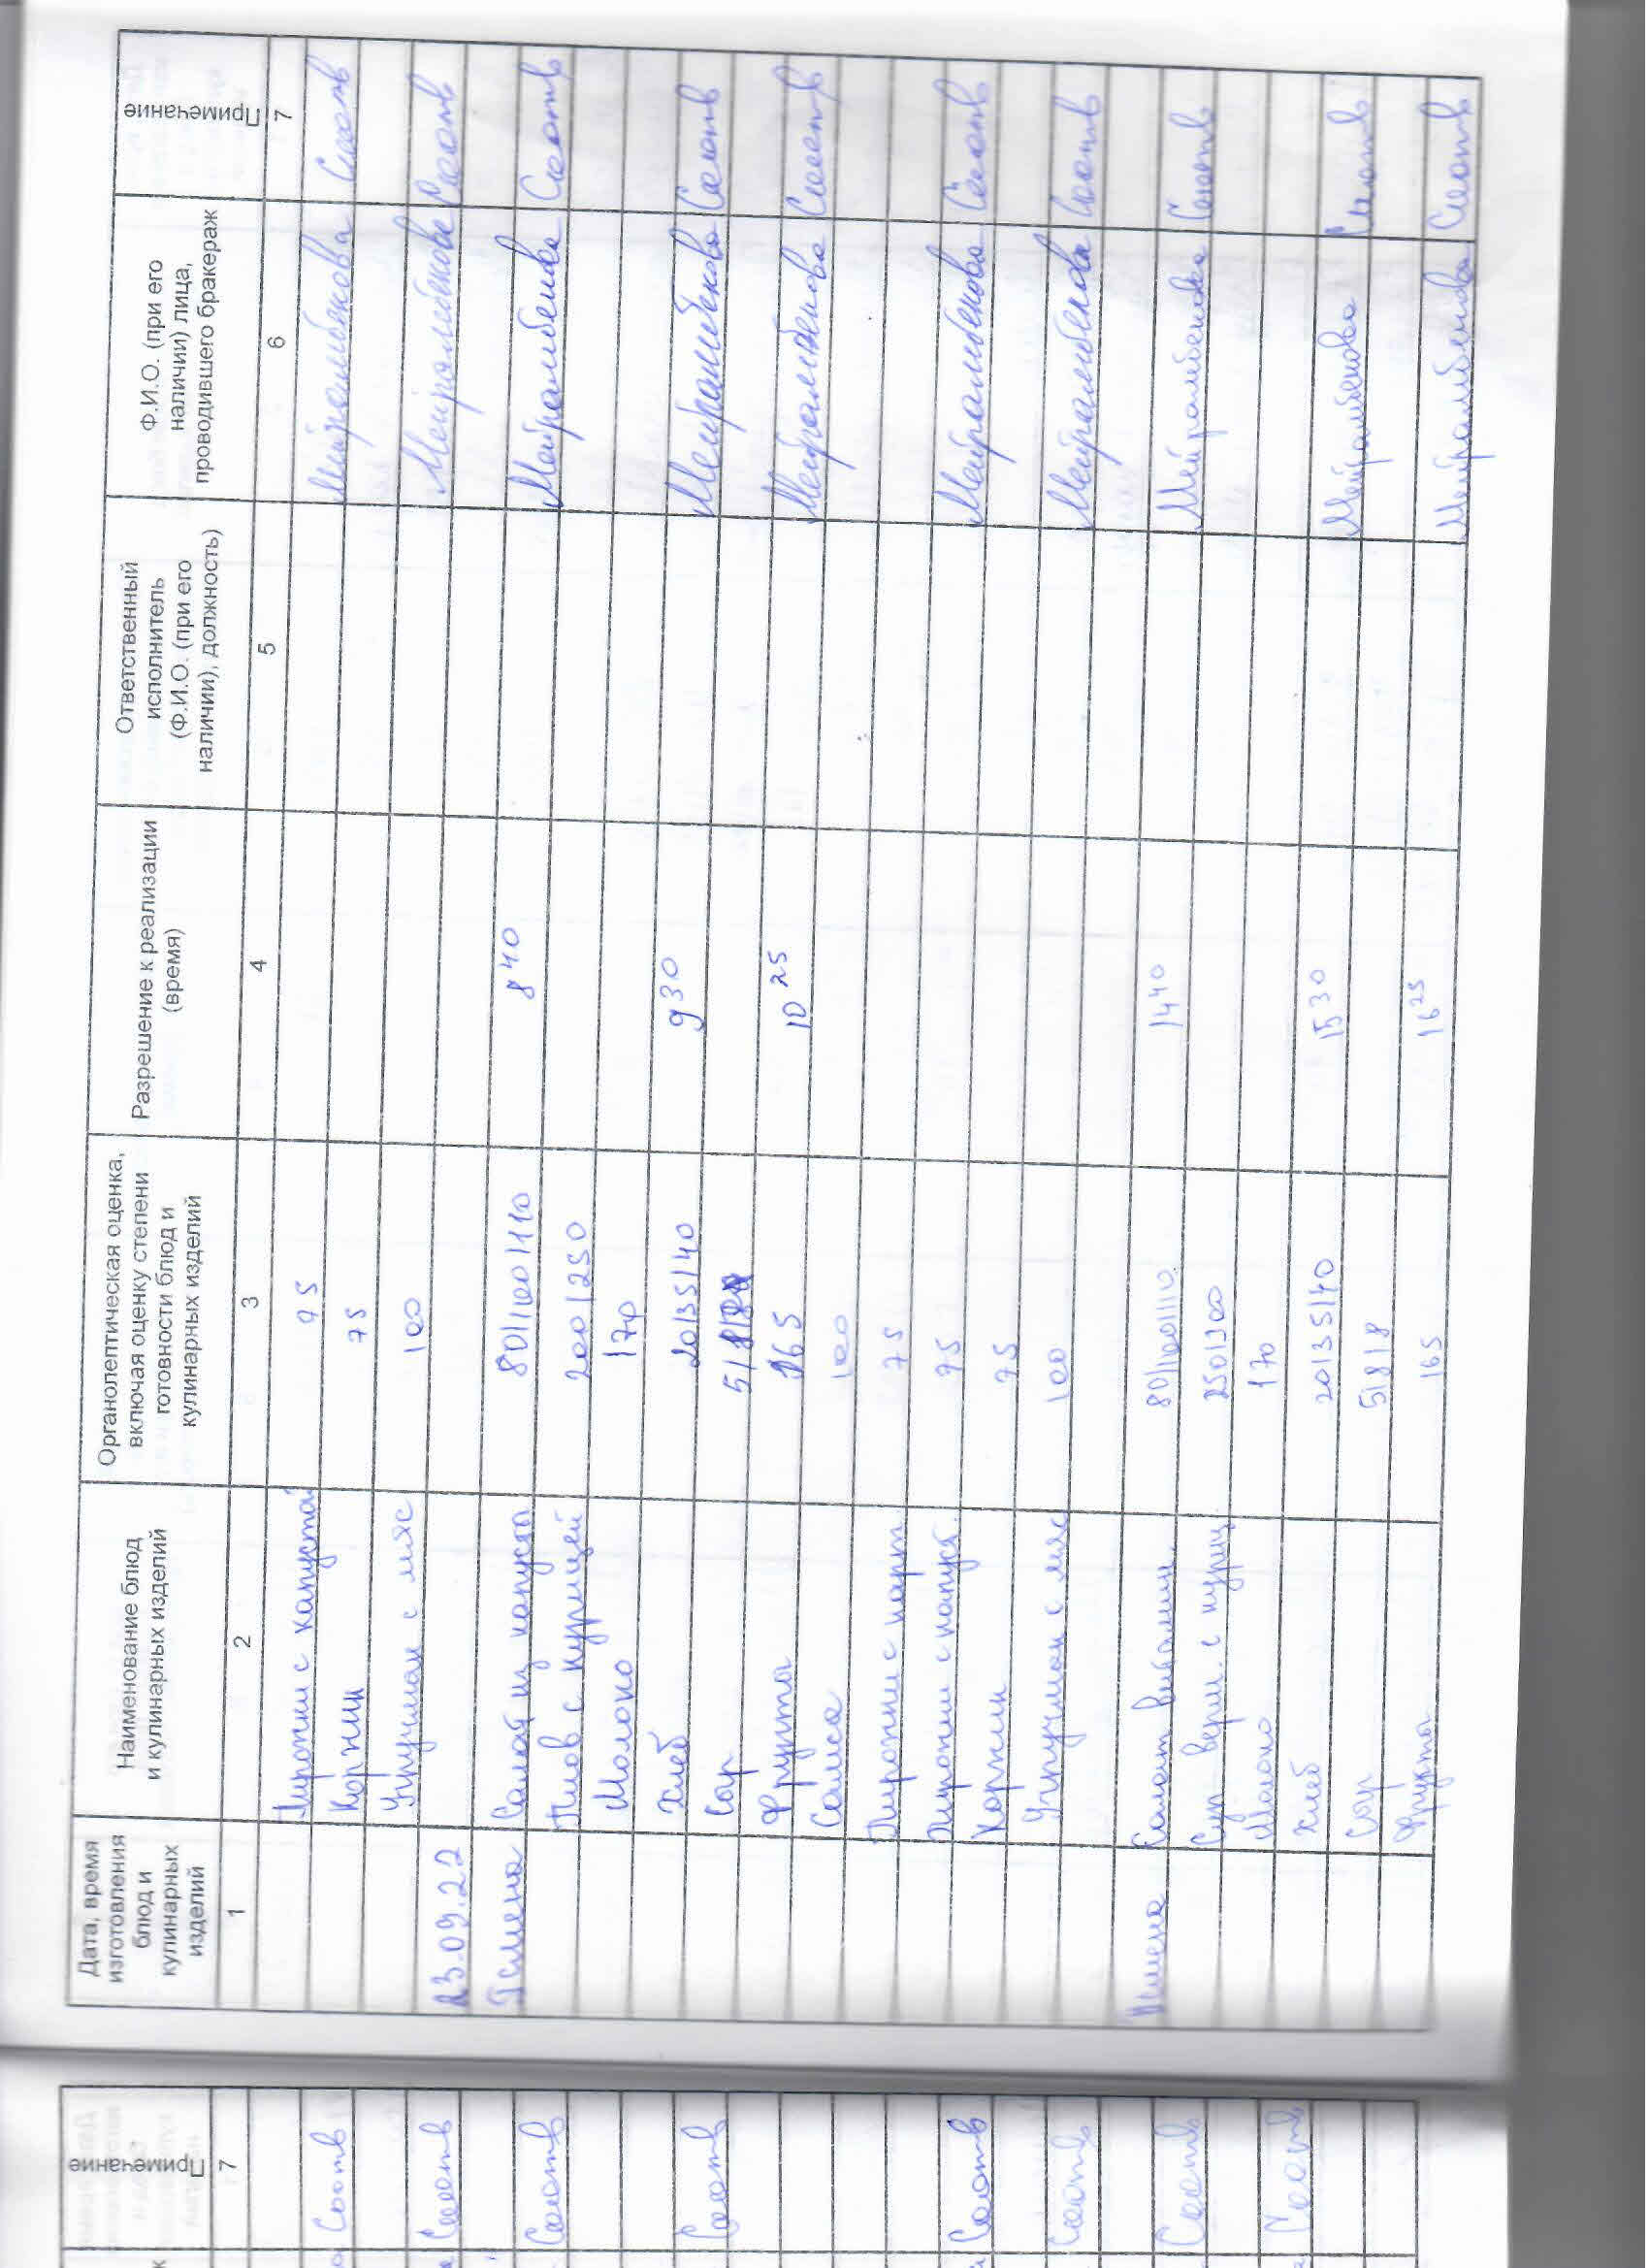 Дата, время изготовления блюд и кулинарных изделий
Наименование блюд и кулинарных изделий
Органолептическая оценка, включая оценку степени готовности блюд и кулинарных изделий
Разрешение к реализации (время)
Ответственный исполнитель (Ф.И.О. (при его наличии), должность)
Ф.И.О. (при его наличии) лица, проводившего бракераж
Примечание
1 2 3 4 5 6 7
Пирожки с капустой 75 Мейрамбекова Соотв
Коржик 75
Учпучмак с мяс 100 Мейрамбекова Соотв
23.09.22
I смена Салат из капусты 80/100/110 8 40 Мейрамбекова Соотв
Плов с курицей 200/250
Молоко 170
Хлеб 20/35/40 9 30 Мейрамбекова Соотв
Сыр 5/8/8
Фрукты 165 10 25 Мейрамбекова Соотв
Самса 100
Пирожки с карт 75
Пирожки с капуст. 75 Мейрамбекова Соотв
Коржик 75
Учпучмак с мяс 100 Мейрамбекова Соотв
II смена Салат витамин. 80/100/110 14 40 Мейрамбекова Соотв
Суп верм. с куриц. 250/300
Молоко 170
Хлеб 20/35/40 15 30 Мейрамбекова Соотв
Сыр 5/8/8
Фрукты 165 16 25 Мейрамбекова Соотв
Примечание
7
Соотв
Соотв
Соотв
Соотв
Соотв
Соотв
Соотв
Соотв